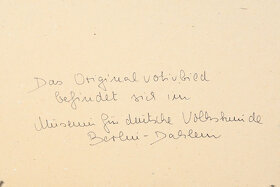 Das Originalvotivbild
befindet sich im
Museum für deutsche Volkskunde
Berlin-Dahlem